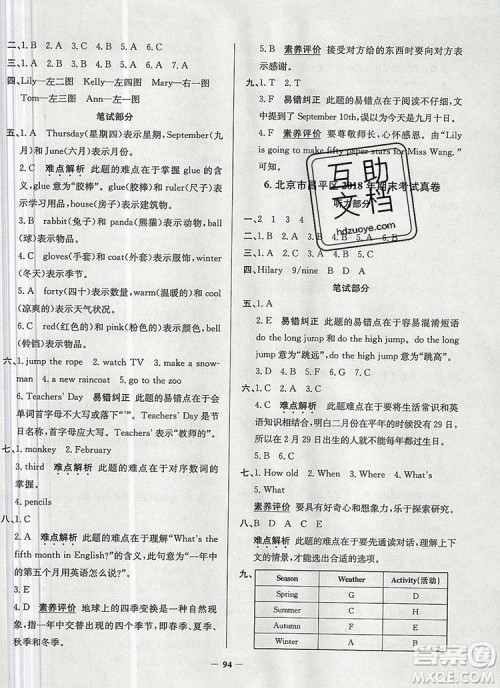 二、1. B　2. A　3. C　三、1. A　2. A　3. B　4. A　5. B　6. C
四、Lily—左二图　Kelly—左四图　Mary—右一图
Tom—左三图　Ann—左一图
笔试部分
五、1. A　Thursday(星期四)表示星期，September(九
月)和June(六月)表示月份。
2. C　难点解析　此题的难点在于掌握glue的含义，
glue意义是“胶棒”。
3. B　door(门)表示物品，home(家)和school(学
校)表示建筑物。
4. B　rabbit(兔子)和panda(熊猫)表示动物，
kite(风筝)表示物品。
5. C　gloves(手套)和coat(外套)表示服装，winter
(冬天)表示季节。
6. A　forty(四十)表示数字，warm(温暖的)和cool
(凉爽的)表示天气状况。
7. C　red(红色的)和pink(粉色的)表示颜色，bell
(铃铛)表示物品。
六、1. jump the rope　2. watch TV　3. make a snow-
man　4. a new raincoat　5. go to the zoo
6. Teachers' Day　易错纠正　此题的易错点在于会
单词首字母不大写或落下“'”。Teachers' Day 是节
日，首字母应大写。Teachers'表示“教师的”。
七、1. monkey　2. February
3. third　难点解析　此题的难点在于对序数词的
掌握。
4. pencils
八、1. C　2. A
3. D　难点解析　此题的难点在于理解“What's the
fifth month in English?”的含义，此句意为“一年中
的第五个月用英语怎么说?”
4. D　素养评价　地球上的四季变换是一种自然现
象，指一年中交替出现的四个季节，即春季、夏季、秋
季和冬季。
5. B　素养评价　接受对方给的东西时要向对方表
示感谢。
九、1. T　2. T
3. F　易错纠正　此题的易错点在于阅读不仔细，文
中提到了September 10th，意为今天是九月十日。
4. F　5. F　素养评价　要尊敬师长，心怀感恩。由“Lily
is going to make fifty paper stars for Miss
6. 北京市昌平区2018年期末考试真卷
听力部分
一、2　1　3　4
四、Hilary　9/nine　B　D　A
笔试部分
五、1. A
2. E　易错纠正　此题的易错点在于容易混淆短语
do the long jump和do the high jump的含义。do
the long jump意为“跳远”，do the high jump意为“跳高”。
3. D　4. B　5. C
六、1. C　2. E　3. D　4. A
5. F　难点解析　此题的难点在于要将生活常识和英
语知识相结合，明白二月份在平年的时候是28天，
所以出生在2月29日的人每四年才能过一次生日。
6. B
七、1. How old　2. When　3. Where　4. When
5. What
素养评价　要具有好奇心和想象力，乐于探索研究。
八、BDACE
难点解析　此题的难点在于要先通读对话，理解上下
文的情景，才能选出合适的选项。
九、
Season　Weather　Activity(活动)
Spring　G　D
Summer　C　H
Autumn　F　E
Winter　A　B
94
互助
文档
hdzuoye.com
答案圈
MXQE.COM